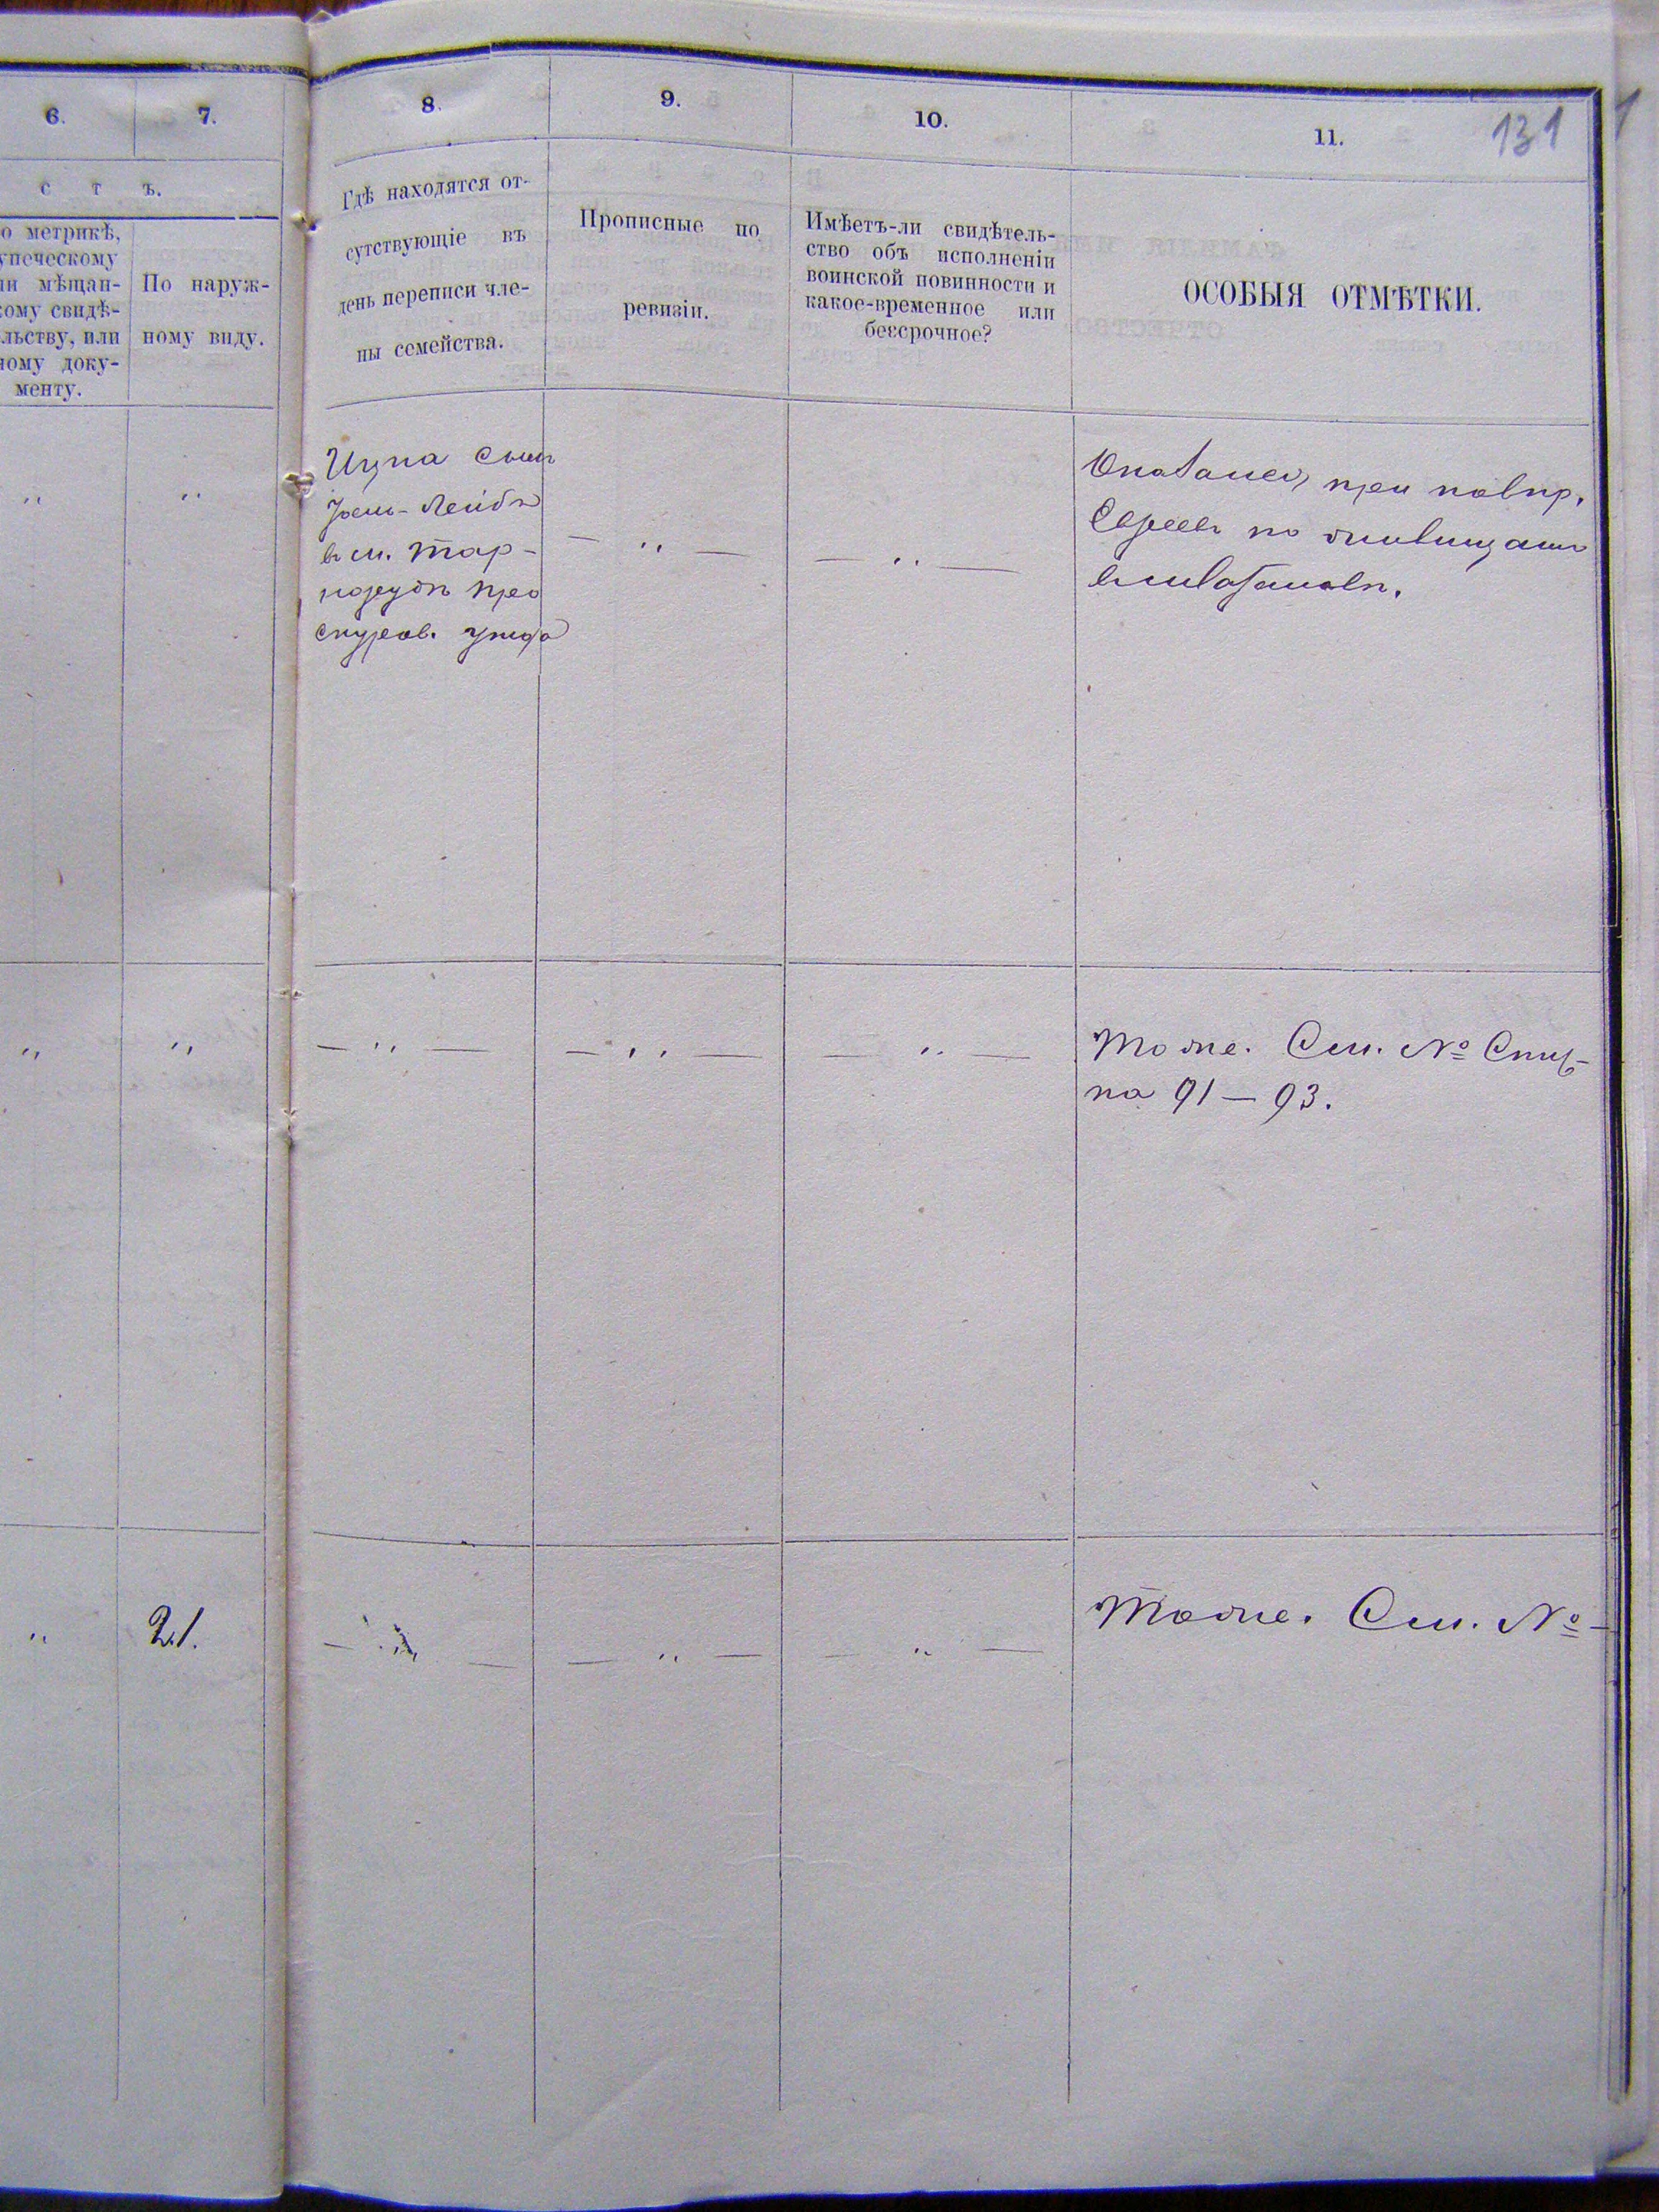 6.
7.
8.
9.
10.
11.
131
с т ъ.
о метрикѣ,
упеческому
ли мѣщан-
кому свидѣ-
льству, или
ному доку-
менту.
По наруж-
ному виду.
Гдѣ находятся от-
сутствующіе въ
день переписи чле-
ны семейства.
Прописные по
ревизіи.
Имѣетъ-ли свидѣтель-
ство объ исполненіи
воинской повинности и
какое-временное или
безсрочное?
ОСОБЫЯ ОТМѢТКИ.
" "
Ицка сынъ
Іось-Лейбъ
въ м. Тар-
норудѣ Про
скуров. уѣзда
— " —
— " —
при повѣр.
Евреевъ по
" "
— " —
— " —
— " —
Тоже. См. № Спис-
ка 91 — 93.
" 21.
— " —
— " —
— " —
Тоже. См. № -